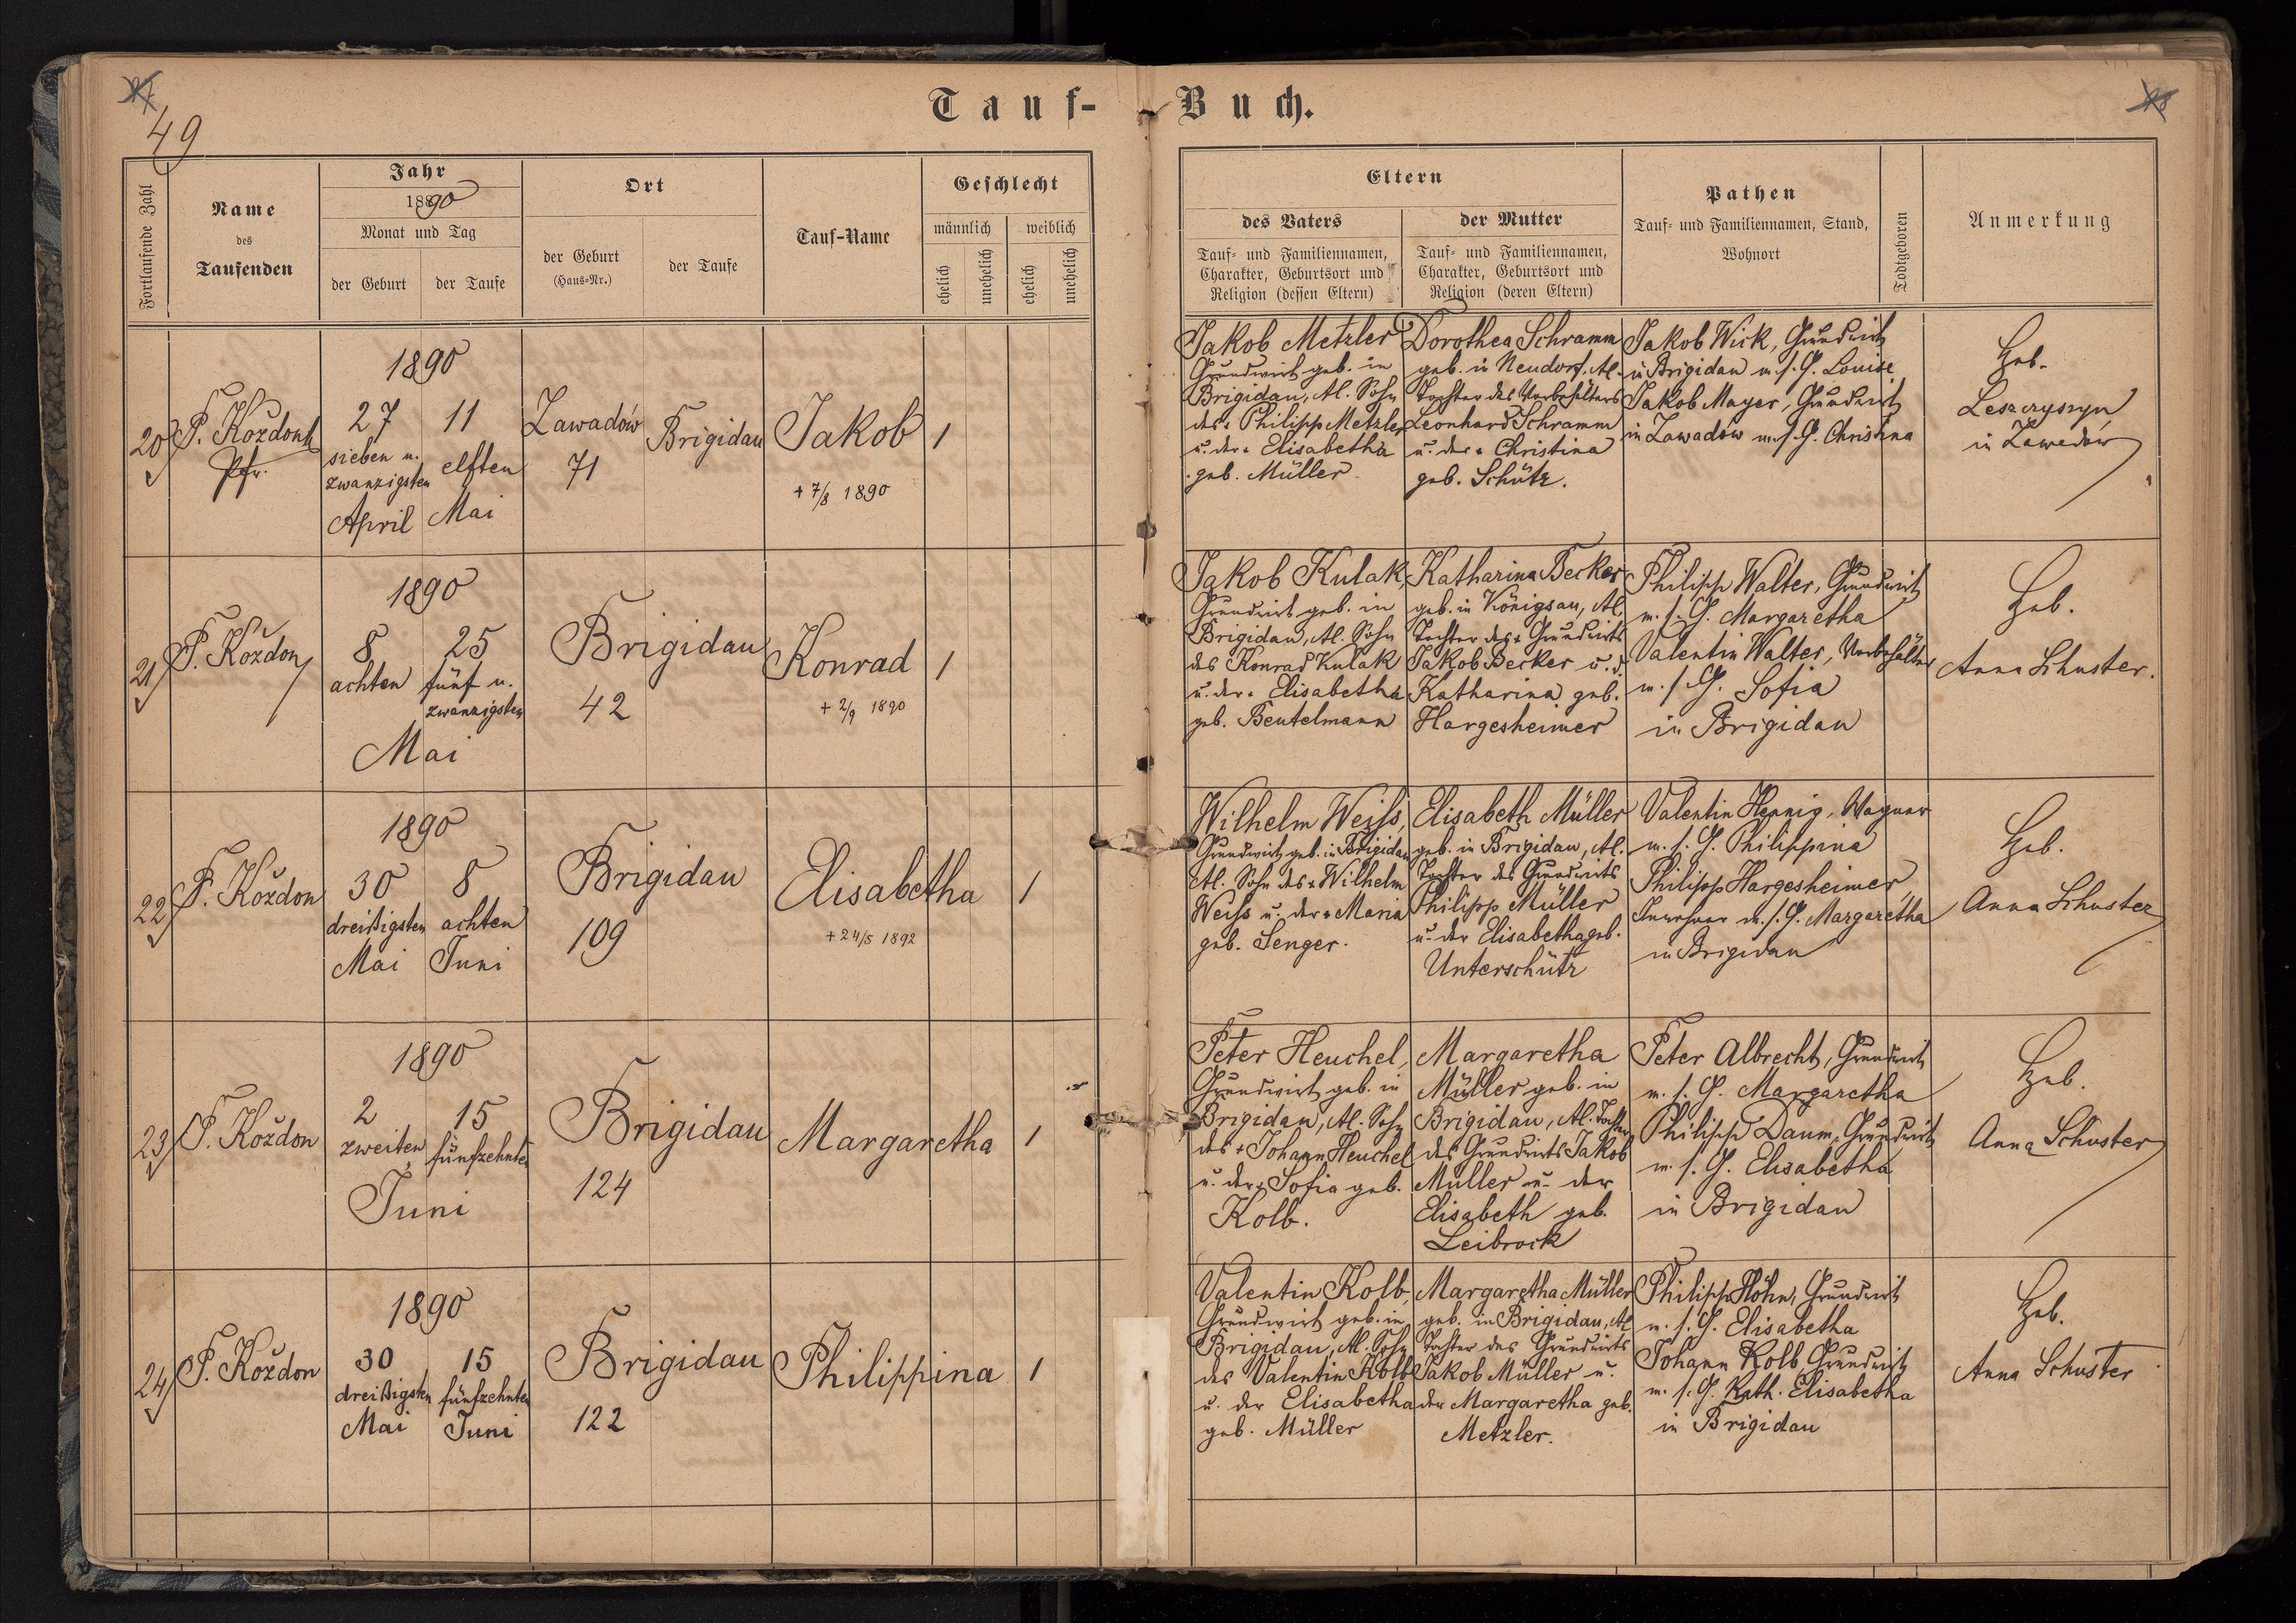 49
Tauf-Buch.
Fortlaufende Zahl
Name
des
Taufenden
Jahr
1890
Monat und Tag
der Geburt
der Taufe
Ort
der Geburt
(Haus-Nr.)
der Taufe
Tauf-Name
Geschlecht
männlich
weiblich
ehelich
unehelich
ehelich
unehelich
Eltern
des Vaters
Tauf- und Familiennamen,
Charakter, Geburtsort und
Religion (dessen Eltern)
der Mutter
Tauf- und Familiennamen,
Charakter, Geburtsort und
Religion (deren Eltern)
Pathen
Tauf- und Familiennamen, Stand,
Wohnort
Todtgeboren
Anmerkung
20
P. Koždoň
Pfr.
1890
27
sieben u.
zwanzigsten
April
11
elften
Mai
Zawadów
71
Brigidau
Jakob
+ 7/8 1890
1
Jakob Metzler
Grundwirt geb. in
Brigidau, Al. Sohn
des + Philipp Metzler
u. der + Elisabetha
geb. Müller
Dorothea Schramm
geb. in Neudorf, Al.
Tochter des Vorbehälters
Leonhard Schramm
u. der + Christina
geb. Schütz.
Jakob Wick, Grundwirt
in Brigidau m. s. G. Louise
Jakob Mayer, Grundwirt
in Zawadów m. s. G. Christina
Heb.
Leszczyszyn
in Zawadów
21
P. Koždon
1890
8
achten
25
fünf u.
zwanzigsten
Mai
Brigidau
42
Konrad
+ 2/9 1890
1
Jakob Kulak,
Grundwirt geb. in
Brigidau, Al. Sohn
des Konrad Kulak
u. der + Elisabetha
geb. Beutelmann
Katharina Becker
geb. in Königsau, Al.
Tochter des + Grundwirts
Jakob Becker u. d.
Katharina geb.
Hargesheimer
Philipp Walter, Grundwirt
m. s. G. Margaretha
Valentin Walter, Vorbehälter
m. s. G. Sofia
in Brigidau
Heb.
Anna Schuster.
22
P. Koždon
1890
30
dreißigsten
Mai
8
achten
Juni
Brigidau
109
Elisabetha
+ 24/5 1892
1
Wilhelm Weiß,
Grundwirt geb. in Brigidau
Al. Sohn des + Wilhelm
Weiß u. der + Maria
geb. Senger.
Elisabeth Müller
geb. in Brigidau, Al.
Tochter des Grundwirts
Philipp Müller
u. der Elisabetha geb.
Unterschütz
Valentin Hennig, Wagner
m. s. G. Philippina
Philipp Hargesheimer,
Inwohner m. s. G. Margaretha
in Brigidau
Heb.
Anna Schuster
23
P. Koždon
1890
2
zweiten
15
fünfzehnten
Juni
Brigidau
124
Margaretha
1
Peter Heuchel,
Grundwirt geb. in
Brigidau, Al. Sohn
des + Johann Heuchel
u. der + Sofia geb.
Kolb.
Margaretha
Müller geb. in
Brigidau, Al. Tochter
des Grundwirts Jakob
Müller u. der
Elisabeth geb.
Leibrock
Peter Albrecht, Grundwirt
m. s. G. Margaretha
Philipp Daum, Grundwirt
m. s. G. Elisabetha
in Brigidau
Heb.
Anna Schuster
24
P. Koždon
1890
30
dreißigsten
Mai
15
fünfzehnten
Juni
Brigidau
122
Philippina
1
Valentin Kolb,
Grundwirt geb. in
Brigidau, Al. Sohn
des Valentin Kolb
u. der Elisabetha
geb. Müller
Margaretha Müller
geb. in Brigidau, Al
Tochter des Grundwirts
Jakob Müller u.
der Margaretha geb.
Metzler.
Philipp Höhn, Grundwirt
m. s. G. Elisabetha
Johann Kolb, Grundwirt
m. s. G. Kath. Elisabetha
in Brigidau
Heb.
Anna Schuster